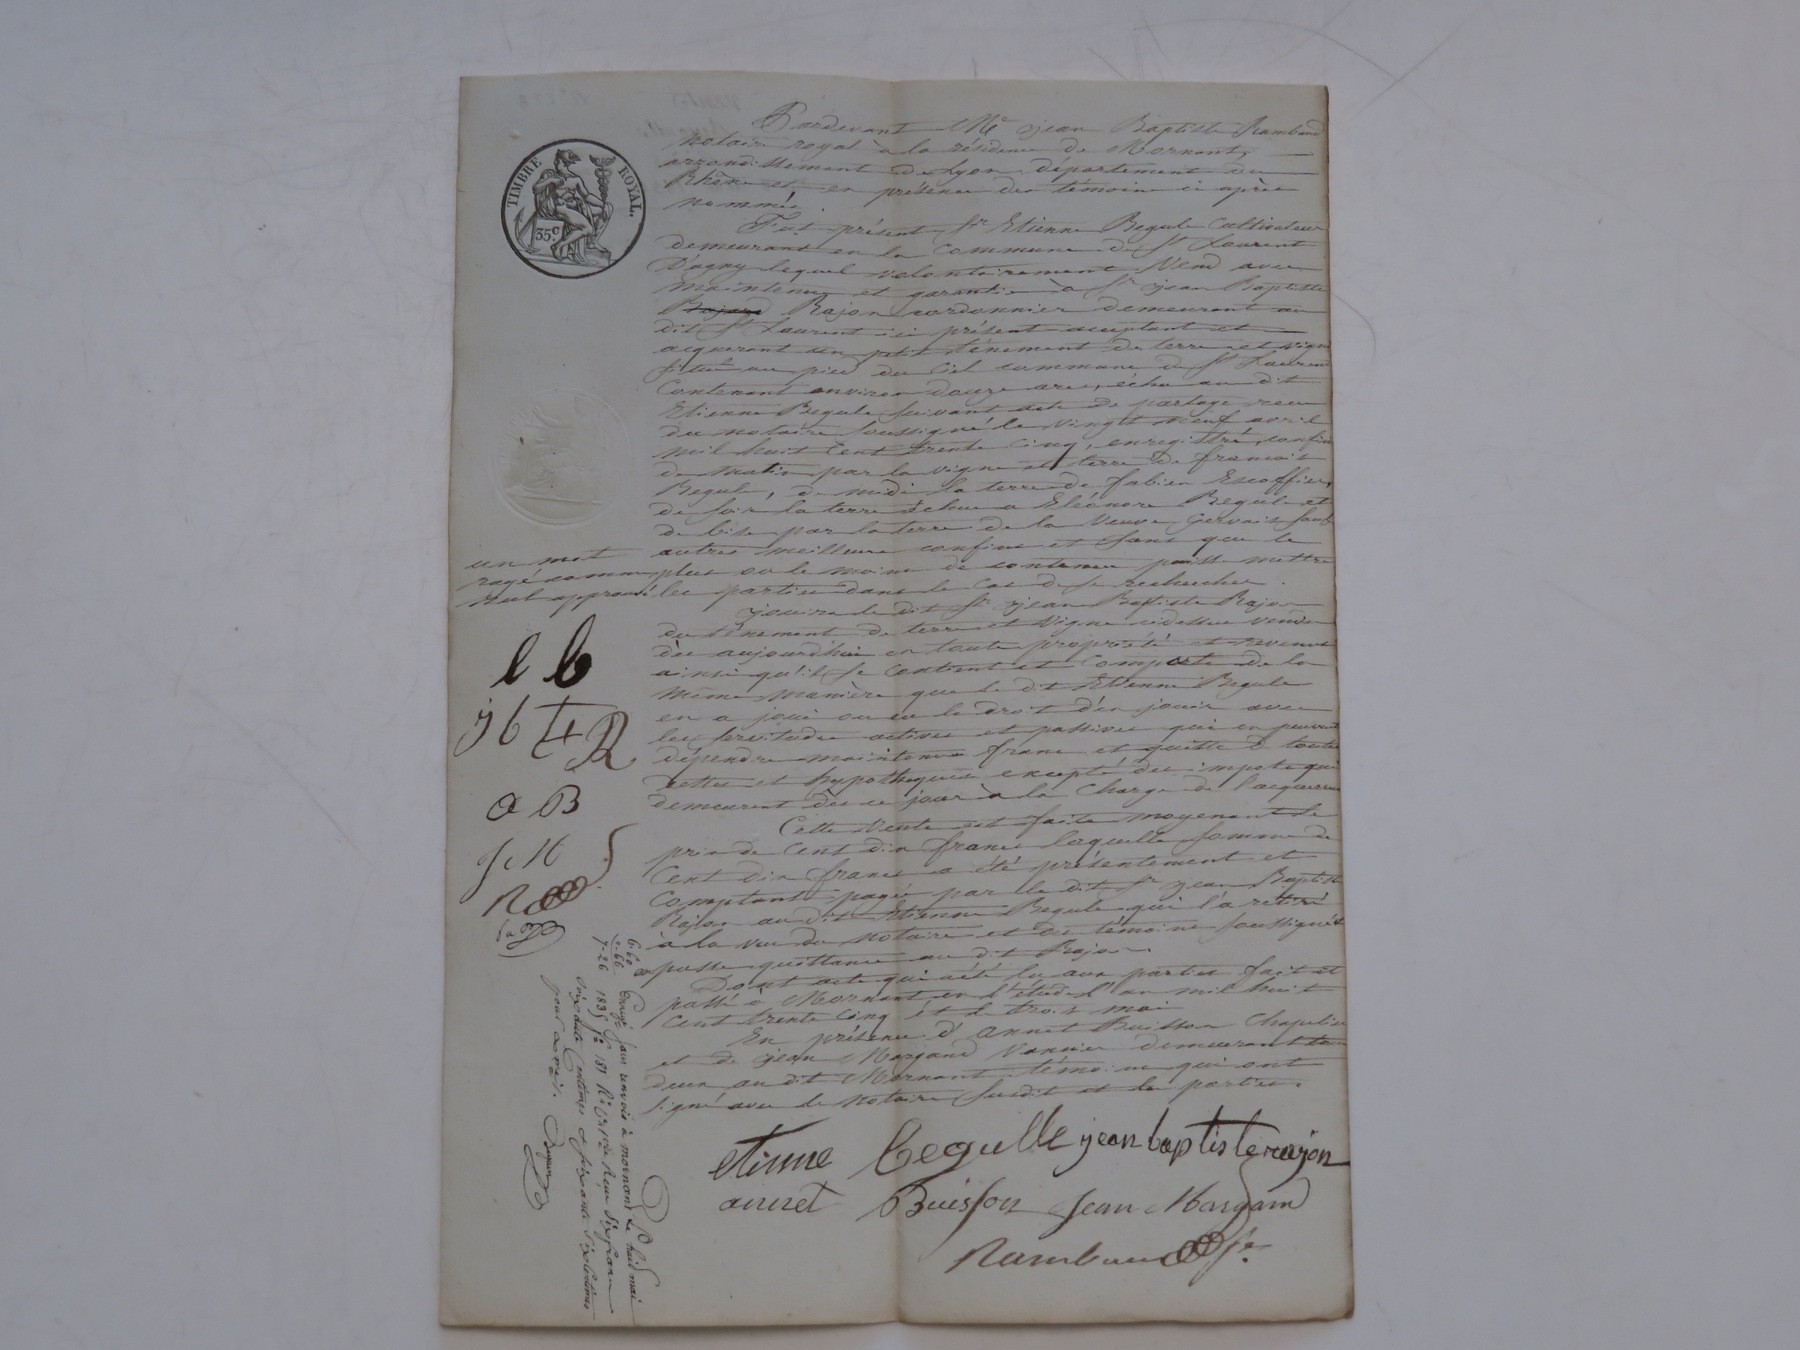 TIMBRE ROYAL.
35c.
Pardevant Me jean Baptiste Rambaud
notaire royal à la résidence de Mornant,
arrondissement de Lyon département du
Rhône et en présence des témoins ci après
nommés
Fut présent Sr Etienne Begule Cultivateur
demeurant en la Commune de St Laurent
D'agny lequel volontairement Vend avec
maintenue et garantie à Sr jean Baptiste
Rajon cordonnier demeurant au
dit St Laurent ici présent acceptant et
acquerant un petit ténement de terre et vigne
situé au pied du Ciel commune de St Laurent
Contenant environ douze ares, échu au dit
Etienne Begule suivant acte de partage reçu
du notaire soussigné le vingt neuf avril
mil huit Cent trente Cinq, enregistré, confin
de matin par la vigne et terre de francois
Begule, de midi la terre de fabien Escoffier,
de soir la terre échue a Eléonore Begule et
de bise par la terre de la Veuve Gervais sauf
autres meilleurs confins et sans que le
plus ou le moins de contenue puisse mettre
les parties dans le Cas de se rechercher.
un mot
rayé comme
nul approuvé
jouira le dit Sr jean Baptiste Rajon
du ténement de terre et vigne cidessus vendu
dès aujourd'hui en toute propriété et revenus
ainsi qu'il se contient et Comporte de la
même manière que le dit Etienne Begule
en a joui ou eu le droit d'en jouir avec
les servitudes actives et passives qui en peuvent
dépendre maintenu franc et quitte de toutes
dettes et hypotheques excepté des impots qui
demeurent dès ce jour à la Charge de l'acquereur
Cette Vente est faite moyenant le
prix de Cent dix francs laquelle somme de
Cent dix francs a été présentement et
Comptant payée par le dit Sr jean Baptiste
Rajon au dit Etienne Begule qui l'a retiré
à la vue du notaire et des témoins soussignés
passe quittance au dit Rajon.
Dont acte qui a été lu aux parties fait et
passé à Mornant en l'étude l'an mil huit
Cent trente Cinq et le trois mai
En présence d'Annet Buisson Chapelier
et de jean Margand Vannier demeurant tous
deux au dit Mornant témoins qui ont
signé avec le notaire susdit et les parties.
e b
j b R
a B
J M
R
etienne begulle jean baptiste rajon
annet Buisson Jean Margand
Rambaud
6-60
-66
7-26
Enregé sans renvois à mornant le huit mai
1835 fo 181 Ro Reçu Six francs
soixante Centimes et soixante Six Centimes
pour